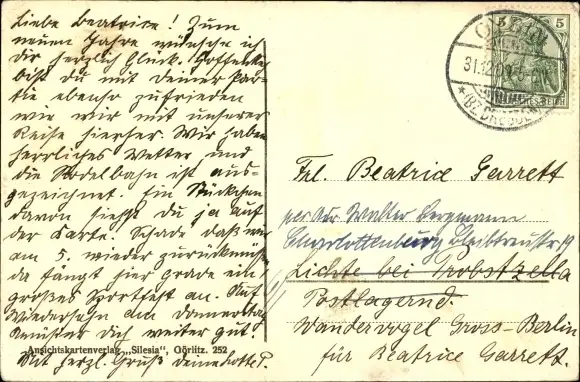 Liebe Beatrice! Zum
neuen Jahre wünsche ich
dir herzlich Glück. Hoffentlich
bist du mit deiner Par-
tie ebenso zufrieden
wie wir mit unserer
Reise hierher. Wir haben
herrliches Wetter und
die Rodelbahn ist aus-
gezeichnet. Ein Stückchen
davon siehst du ja auf
der Karte. Schade daß wir
am 5. wieder zurückmüssen
da fängt hier grade ein
großes Sportfest an. Auf
Wiedersehn am Donnerstag
Amüsier dich weiter gut!
Mit herzl. Gruß deine Lotte P.
Ansichtskartenverlag „Silesia", Görlitz. 252
OYBIN
31.12.09. 5-6N
*(BZ. DRESDEN)
5 5
DEUTSCHES REICH
Frl. Beatrice Garrett
per Adr Walter Bergmann
Charlottenburg Bleibtreustr 19
Lichte bei Probstzella
Postlagernd.
Wandervogel Gross-Berlin
für Beatrice Garrett.